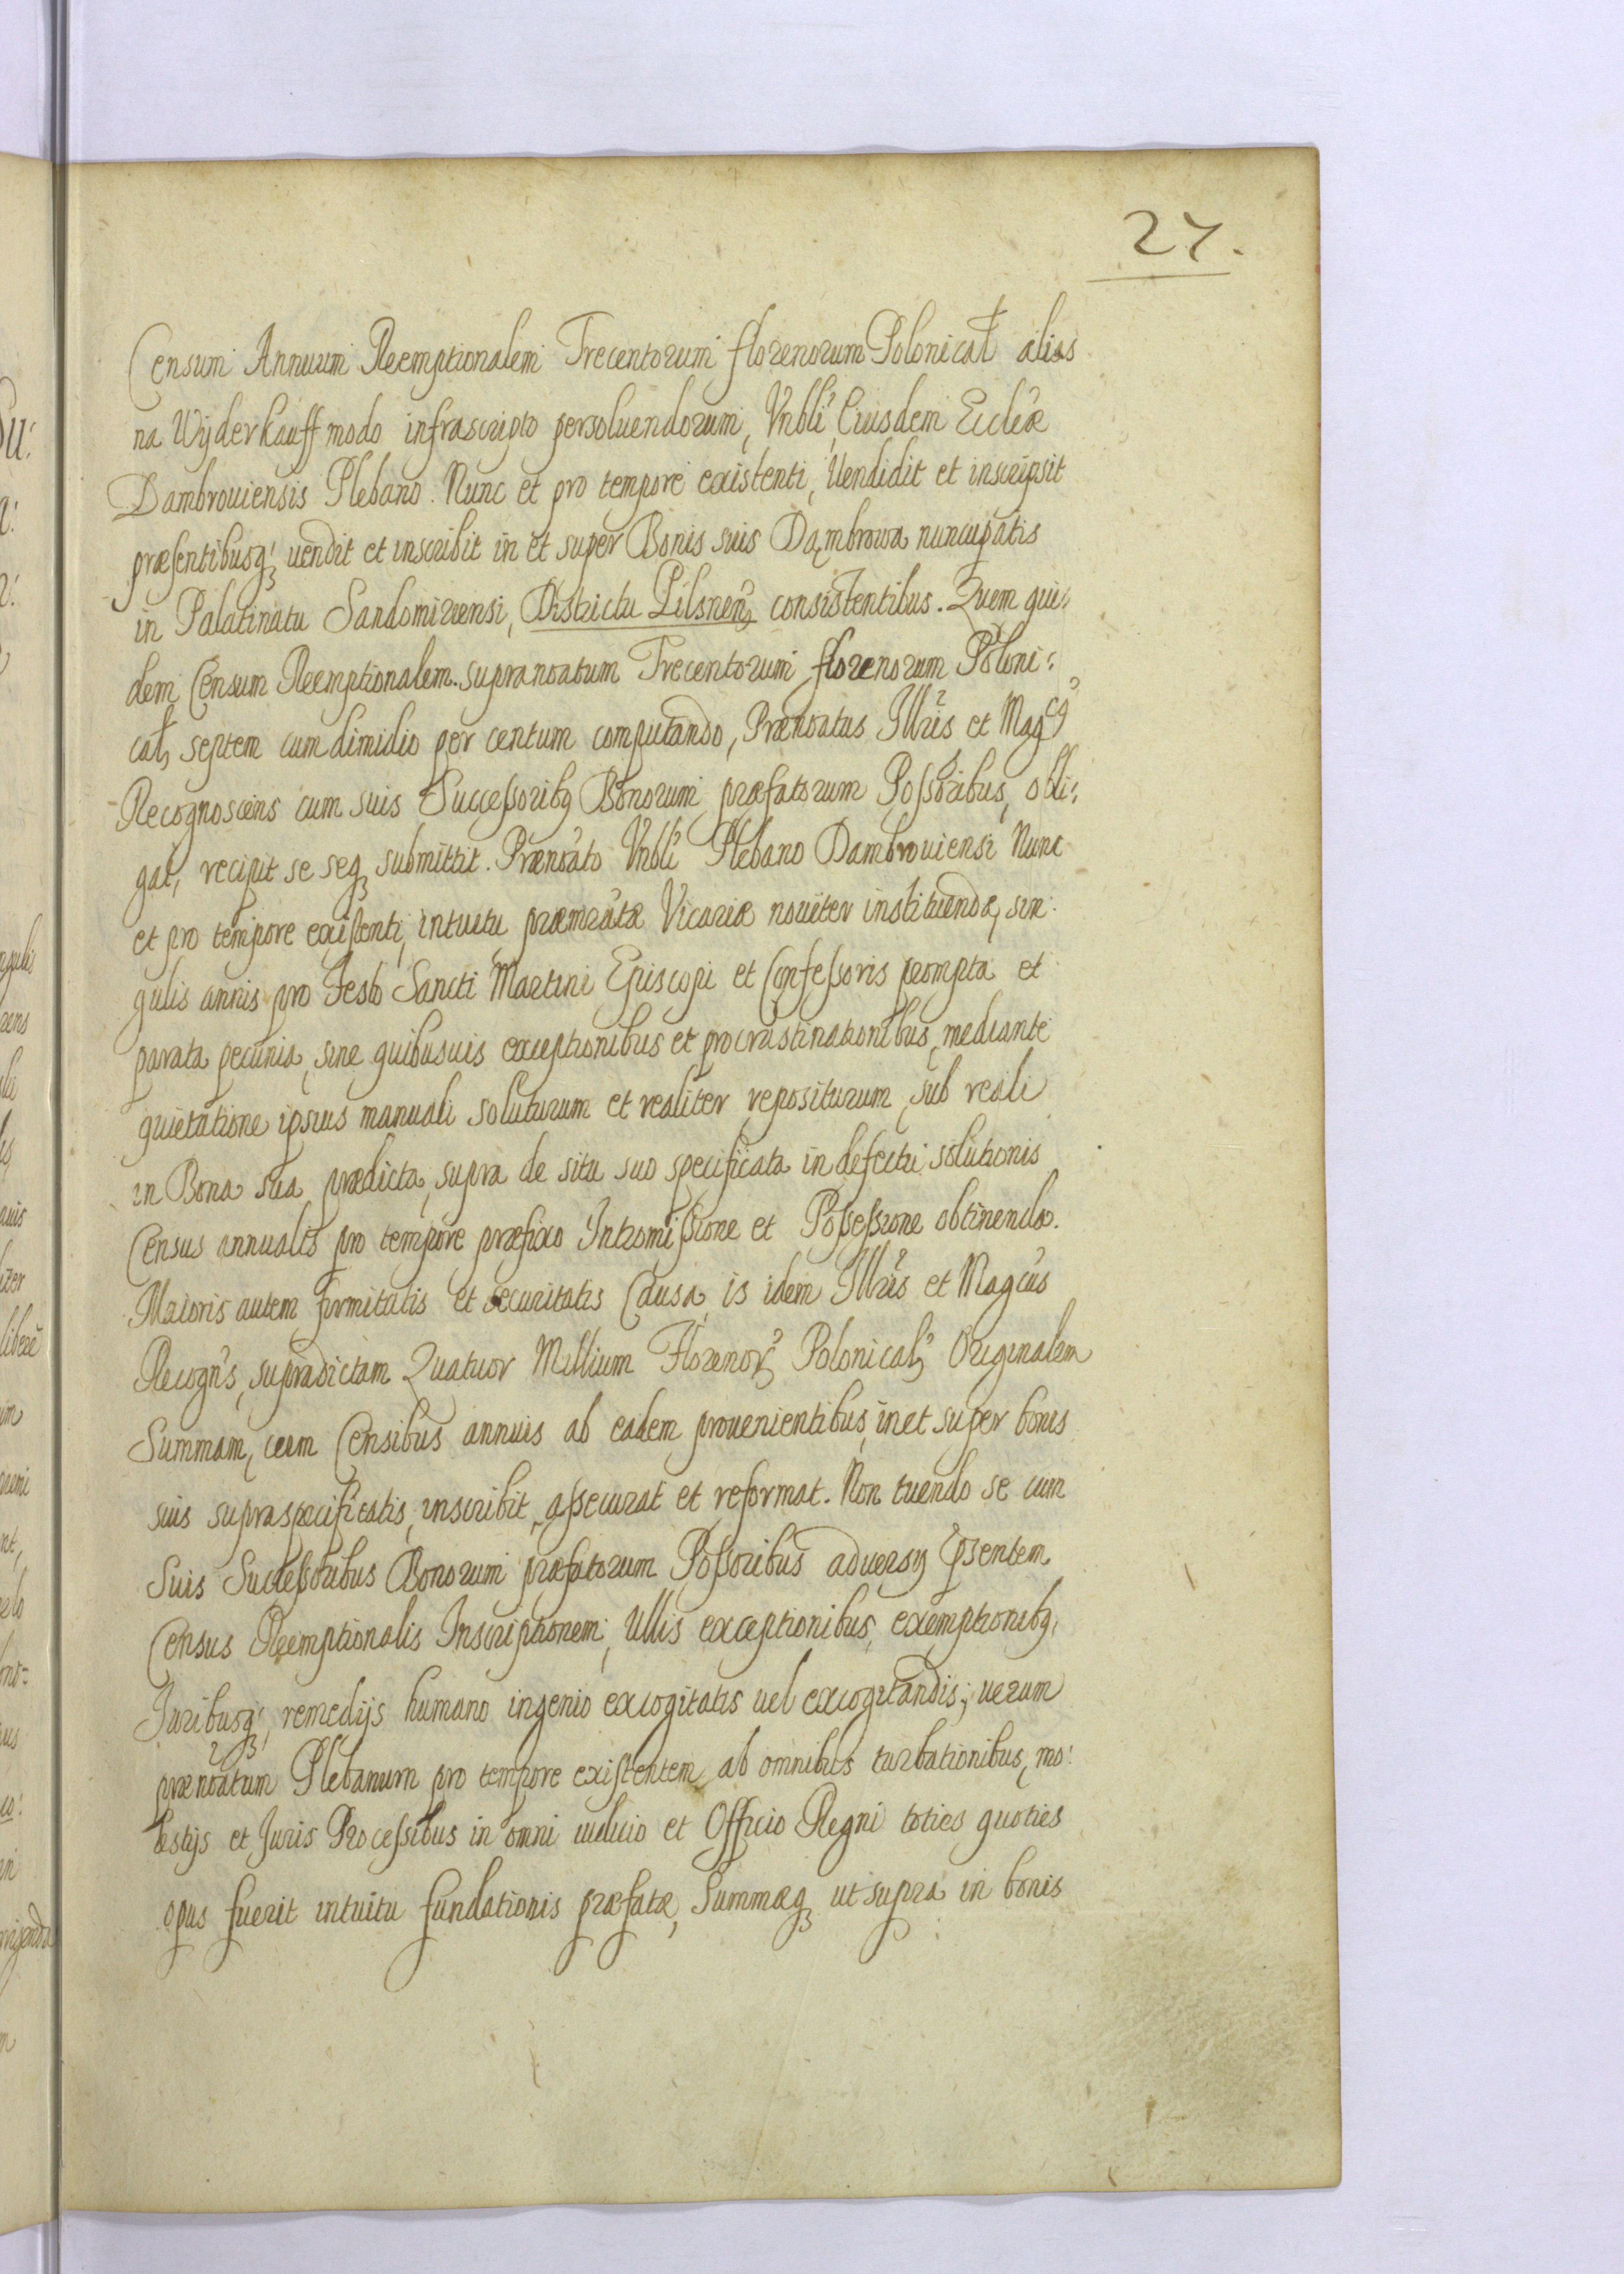 27.
Censum Annuum Reemptionalem Trecentorum florenorum Polonicał alias
na Wyderkauff modo infrascripto persoluendorum, Vnbli Eiusdem Ecclæ
Dambrouiensis Plebano. Nunc et pro tempore existenti, Uendidit et inscripsit
præsentibusq; uendit et inscribit in et super Bonis suis Dąmbrowa nuncupatis
in Palatinatu Sandomiriensi, Districtu Pilsnen̄ consistentibus. Quem qui:
dem Censum Reemptionalem supranoatum Trecentorum florenorum Poloni:
cał, septem cum dimidio per centum computando, Prænoatus Illris et Mag͡cꝰ
Recognoscens cum suis Successoribꝫ Bonorum præfatorum Possoribus, obli:
gat, recipit se seqꝫ submittit. Prænoato Vnbli Plebano Dambrouiensi Nunc
et pro tempore existenti, intuitu præmratæ Vicariæ nouiter instituendæ, sin:
gulis annis pro Festo Sancti Martini Episcopi et Confessoris prompta et
parata pecunia, sine quibusuis exceptionibus et procrastinationibus, mediante
quietatione ipsius manuali soluturum et realiter repositurum, sub reali
in Bona sua prædicta, supra de situ suo specificata in defectu solutionis
Census annualis pro tempore præfixo Intromissione et Possessione obtinenda.
Maioris autem firmitatis et securitatis Causa, is idem Illris et Magcus
Recogns, supradictam Quatuor Millium Florenorꝫ Polonicalꝫ Originalem
Summam, cum Censibus annuis ab eadem prouenientibus, in et super bonis
suis supraspecificatis, inscribit, assecurat et reformat. Non tuendo se cum
Suis Successoribus Bonorum præfatorum Possoribus aduersꝫ p̃sentem
Census Reemptionalis Inscriptionem, Ullis exceptionibus, exemptionibꝫ,
Juribusqꝫ, remedijs humano ingenio excogitatis uel excogitandis; uerum
prænoatum Plebanum pro tempore existentem, ab omnibus turbationibus, mo:
lestijs et Juris Processibus in omni iudicio et Officio Regni toties quoties
opus fuerit intuitu fundationis præfatæ, Summæqꝫ ut supra in bonis